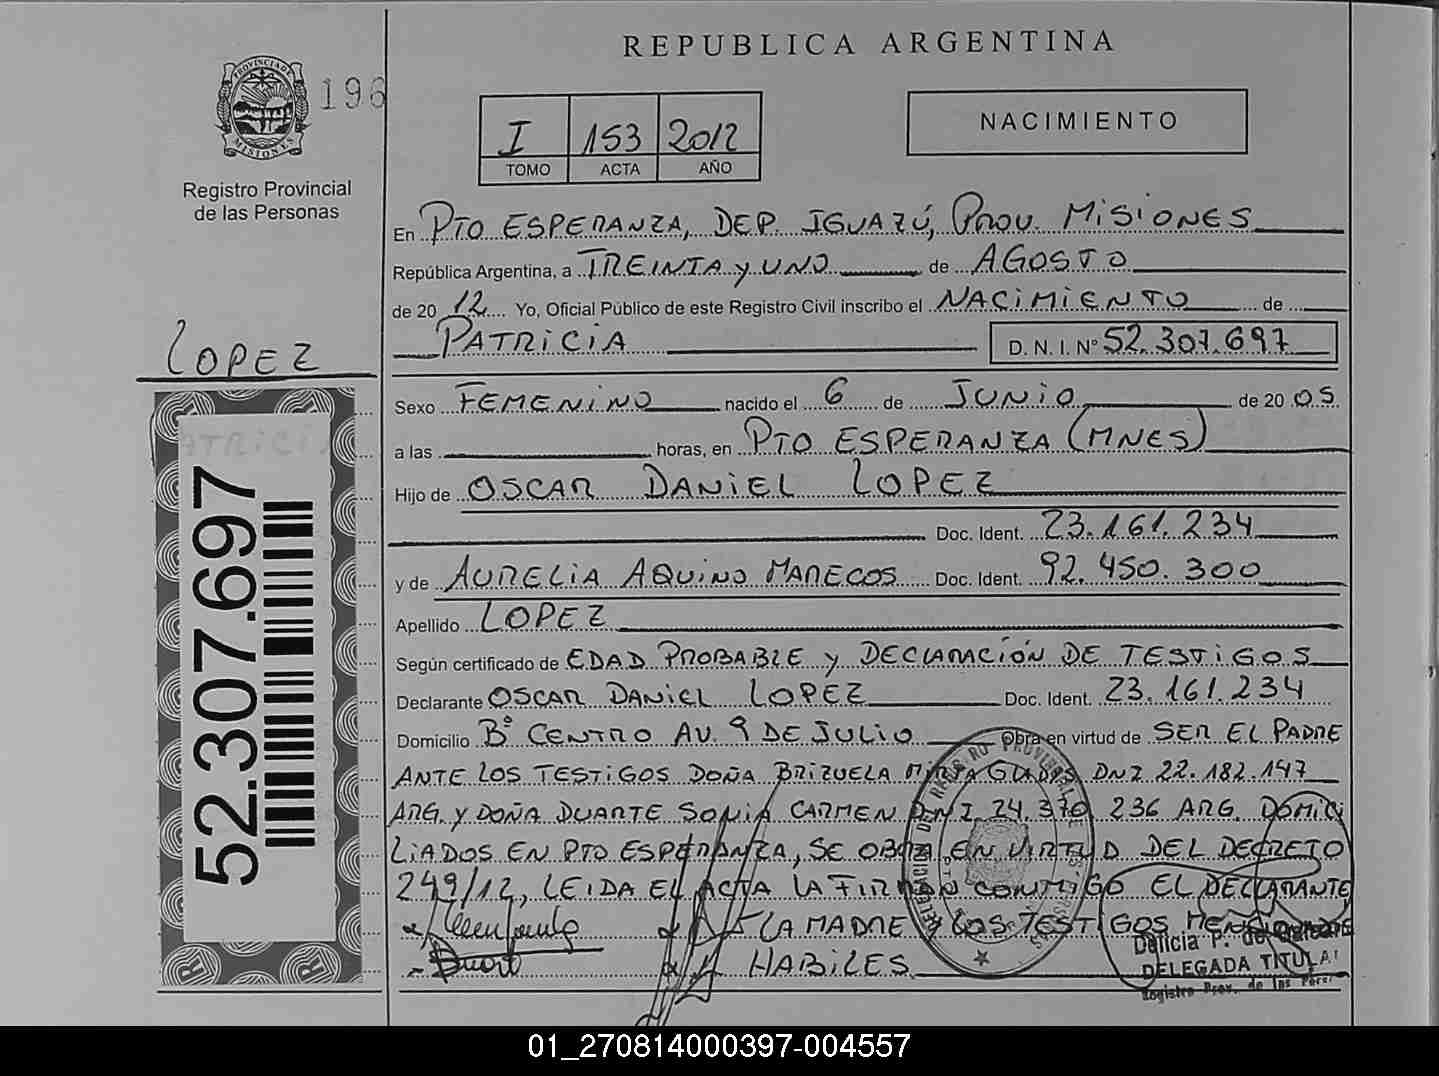 REPUBLICA ARGENTINA
PROVINCIA DE
MISIONES
196
Registro Provincial
de las Personas
I 153 2012
TOMO ACTA AÑO
NACIMIENTO
En PTO ESPERANZA, DEP. IGUAZÚ, PROV. MISIONES
República Argentina, a TREINTA y UNO de AGOSTO
de 20 12 Yo, Oficial Público de este Registro Civil inscribo el NACIMIENTO de
PATRICIA D. N. I. Nº 52.307.697
LOPEZ
PATRICIA
52.307.697
Sexo FEMENINO nacido el 6 de JUNIO de 20 05
a las horas, en PTO ESPERANZA (MNES)
Hijo de OSCAR DANIEL LOPEZ
Doc. Ident. 23.161.234
y de AURELIA AQUINO MARECOS Doc. Ident. 92.450.300
Apellido LOPEZ
Según certificado de EDAD PROBABLE y DECLARACIÓN DE TESTIGOS
Declarante OSCAR DANIEL LOPEZ Doc. Ident. 23.161.234
Domicilio Bº CENTRO AV. 9 DE JULIO Obra en virtud de SER EL PADRE
ANTE LOS TESTIGOS DOÑA BRIZUELA MIRTA GLADYS DNI 22.182.147
ARG. Y DOÑA DUARTE SONIA CARMEN DNI 24.370.236 ARG. DOMICI
LIADOS EN PTO ESPERANZA, SE OBRA EN VIRTUD DEL DECRETO
249/12, LEIDA EL ACTA LA FIRMAN CONMIGO EL DECLARANTE
LA MADRE y LOS TESTIGOS
HABILES
Delicia P. de
DELEGADA TITULAR
Registro Prov. de las Pers.
01_270814000397-004557